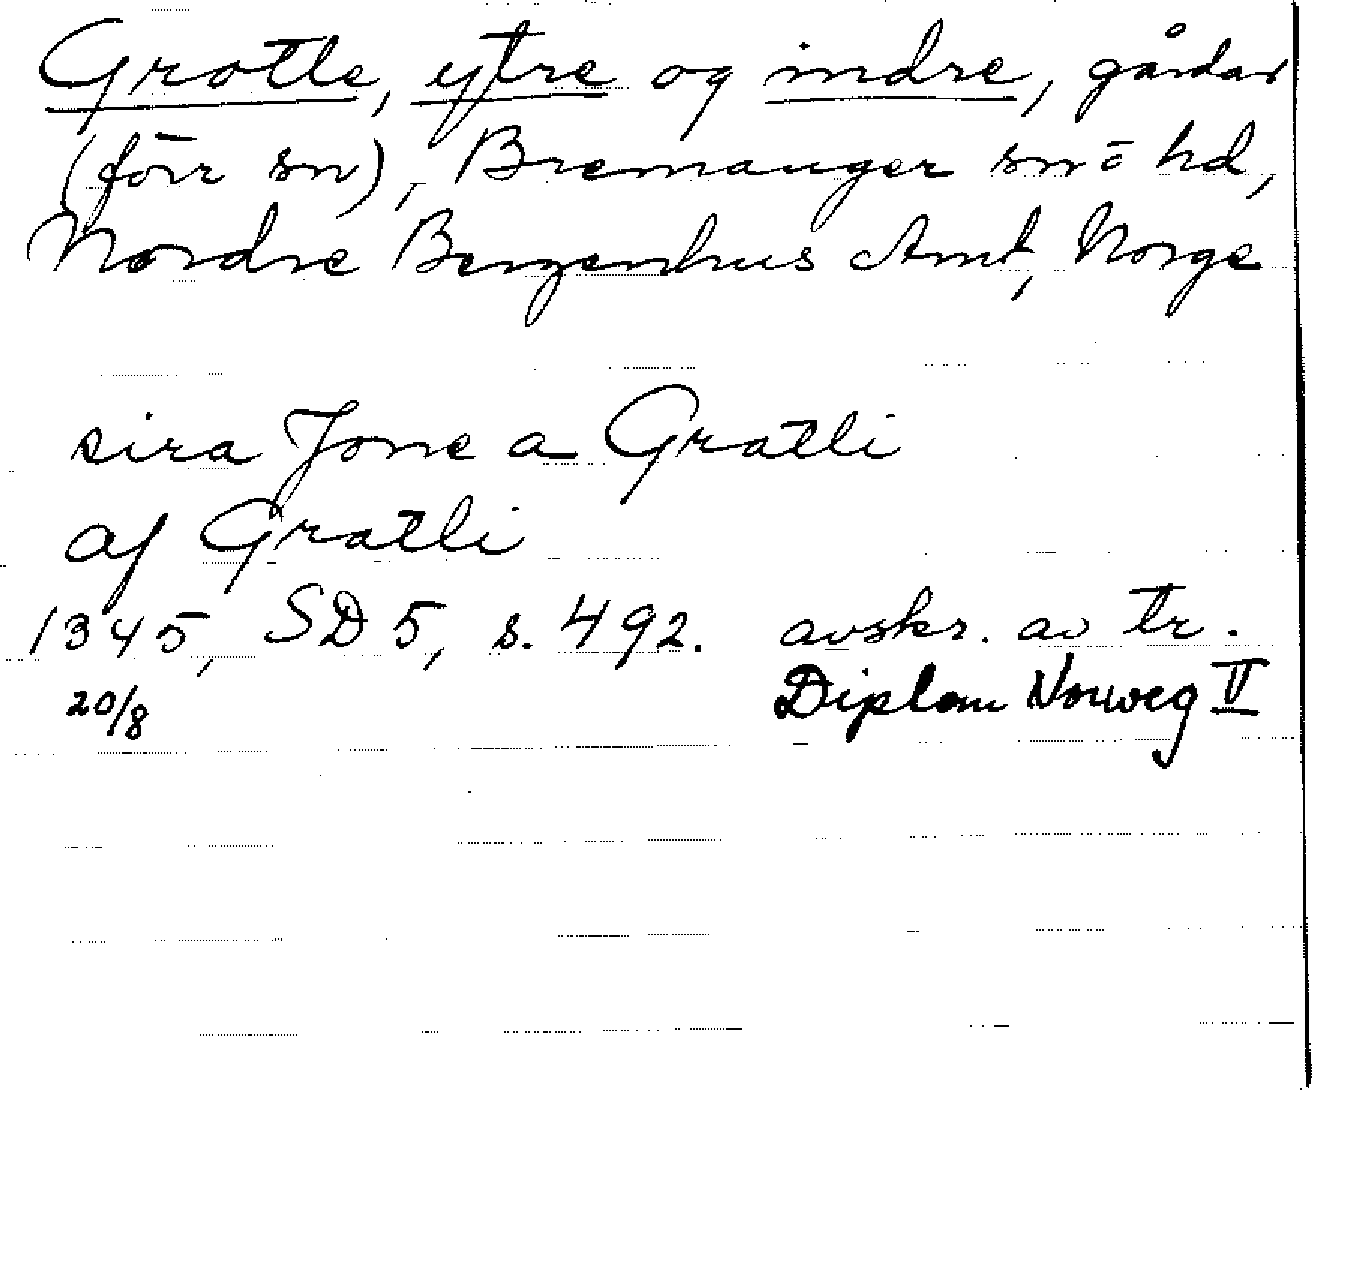 Grotle, ytre og indre, gårdar
(förr sn), Bremanger sn o hd,
Nordre Bergenhus Amt, Norge
sira Jone a Gratli
af Gratli
1345, SD 5, s. 492. avskr. av tr.
20/8 Diplom Norweg V